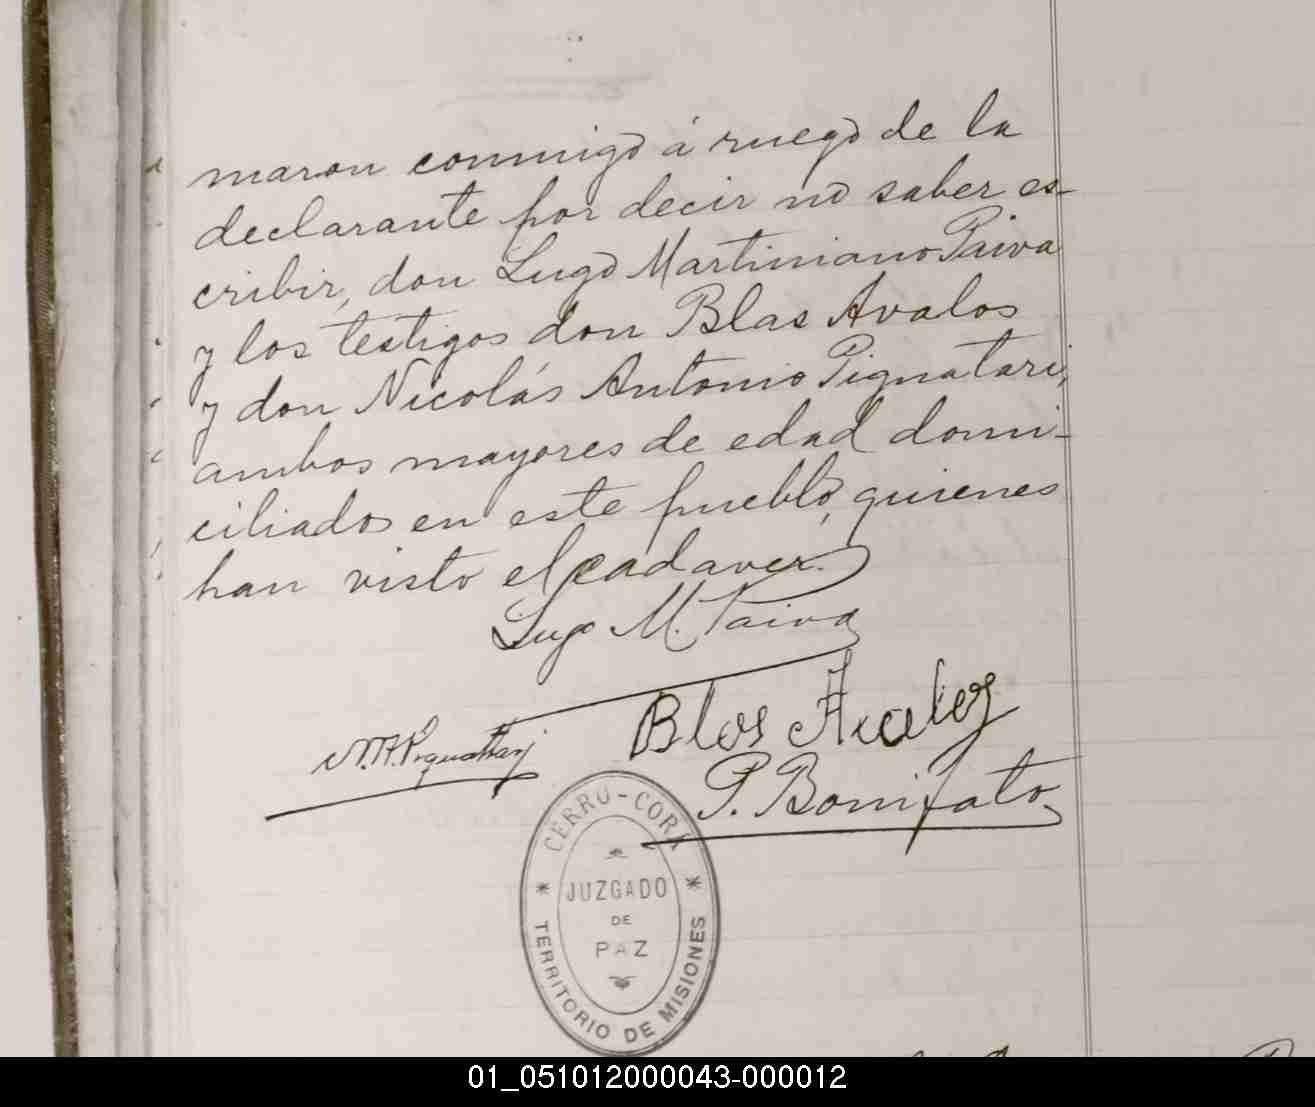 maron conmigo á ruego de la
declarante por decir no saber es-
cribir, don Lugo Martiniano Paiva
y los testigos don Blas Avalos
y don Nicolás Antonio Pignatari,
ambos mayores de edad domi-
ciliados en este pueblo, quienes
han visto el cadaver.
Lugo M. Paiva
Blas Avalos
N. A. Pignattari
P. Bonifato
CERRO-CORÁ
JUZGADO
DE
PAZ
TERRITORIO DE MISIONES
01_051012000043-000012